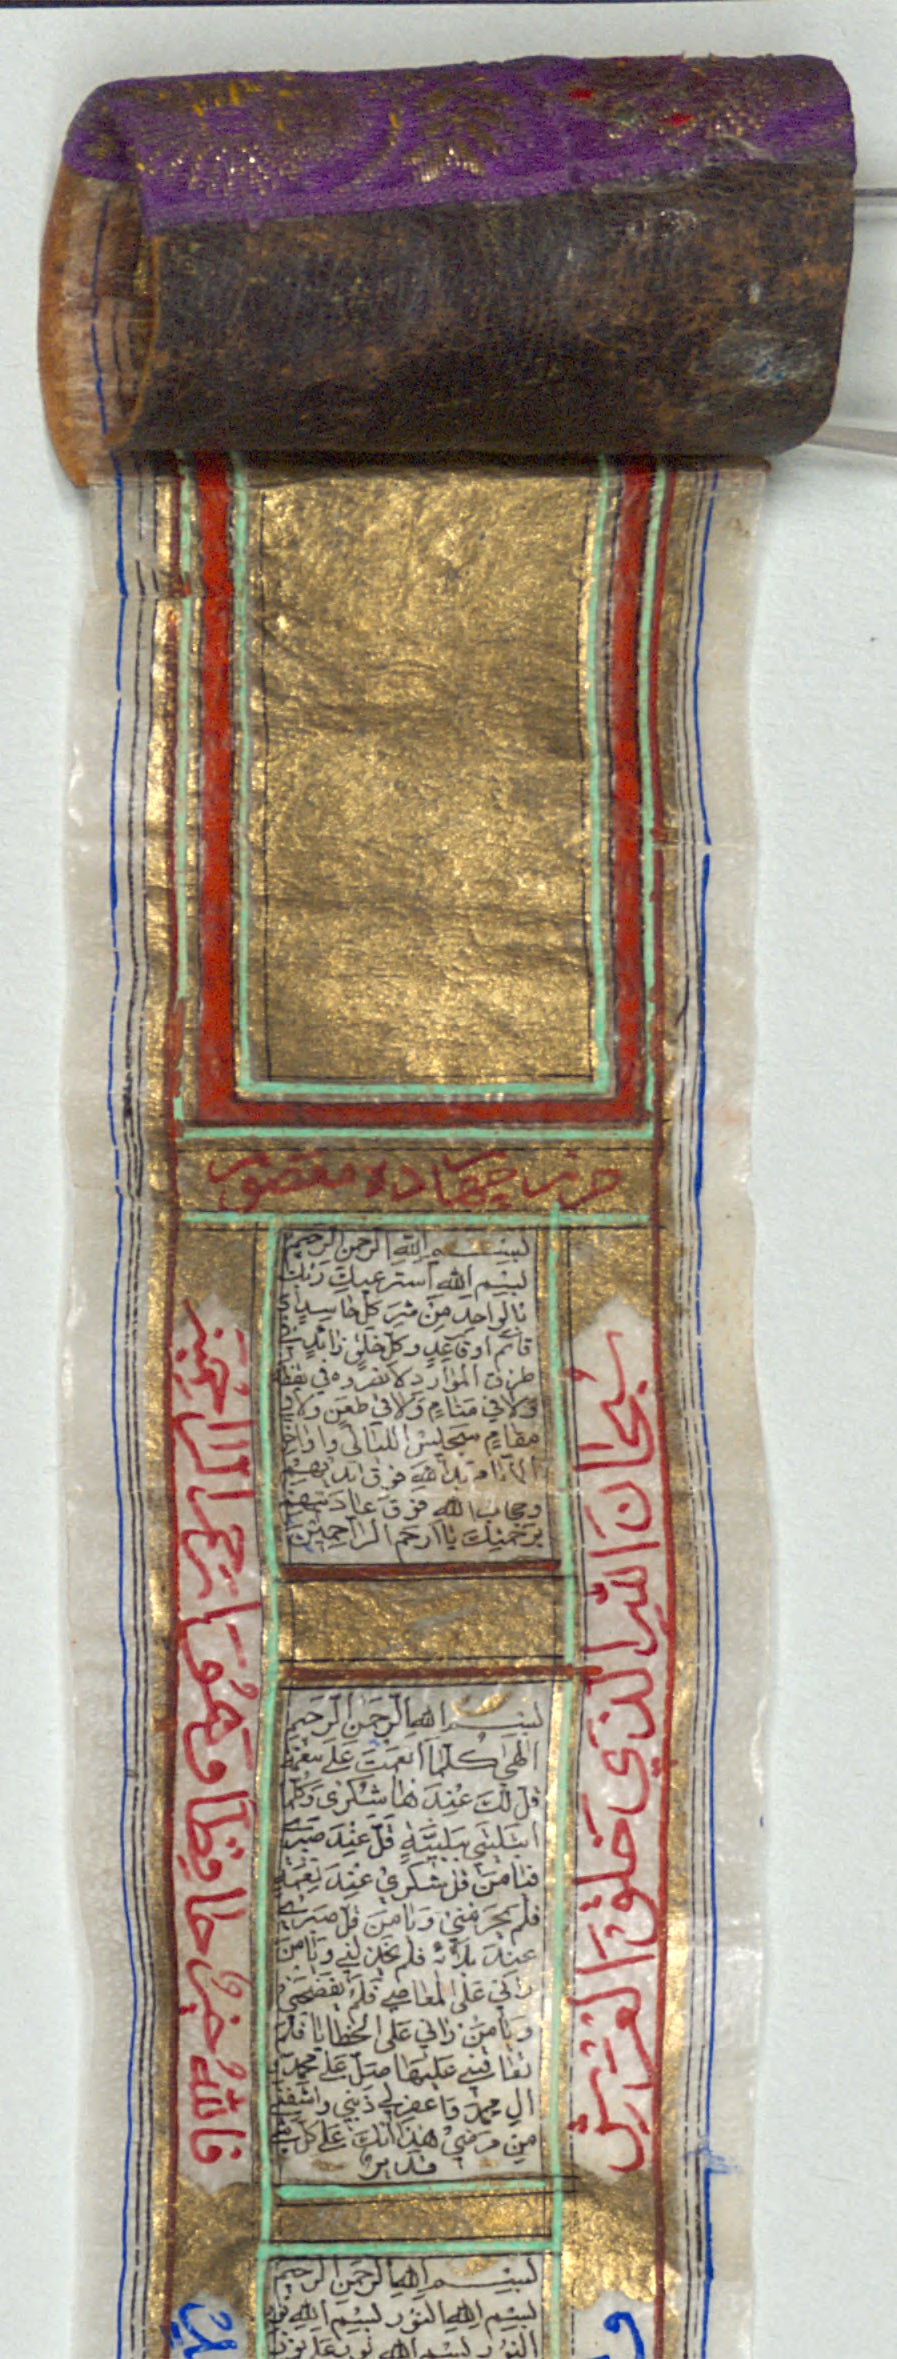 حرز چهارده معصوم
بسم الله الرحمن الرحيم
بسم الله استرعيك ربك
بالواحد من شر كل حاسد
قائم او قاعد وكل خلق زائد
طرق الموارد لا تضروه في يقظة
ولا في منام ولا في ظعن ولا في
مقام سجيس الليالي واواخر
الايام يد الله فوق ايديهم
وحجاب الله فوق عاديتهم
برحمتك يا ارحم الراحمين
بسم الله الرحمن الرحيم
الهي كلما انعمت علي بنعمة
قل لك عندها شكري وكلما
ابتليتني ببلية قل عند صبري
فيا من قل شكري عند نعمته
فلم يحرمني ويا من قل صبري
عند بلائه فلم يخذلني ويا من
راني على المعاصي فلم يفضحني
ويا من راني على الخطايا فلم
يعاقبني عليها صل على محمد
ال محمد واغفر لي ذنبي واشفني
من مرضي هذا انك على كل
قدير
بسم الله الرحمن الرحيم
بسم الله النور بسم الله نور
النور بسم الله نور على نور
سُبحان الله الذي خلق العرش
فالله خير حافظا وهو ارحم الراحمين